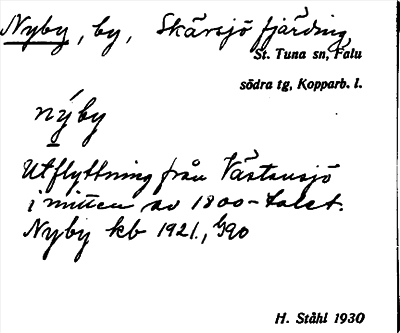 Nyby, by, Skärsjö fjärding
St. Tuna sn, Falu
södra tg, Kopparb. l.
nýby
Utflyttning från Västansjö
i mitten av 1800-talet.
Nyby kb 1921.,
H. Ståhl 1930